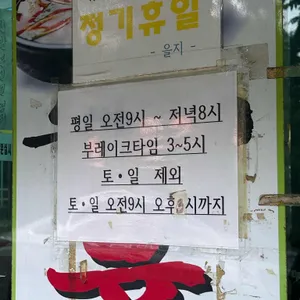 정기휴일
- 을지 -
평일 오전9시 ~ 저녁8시
부레이크타임 3~5시
토·일 제외
토·일 오전9시 오후3시까지